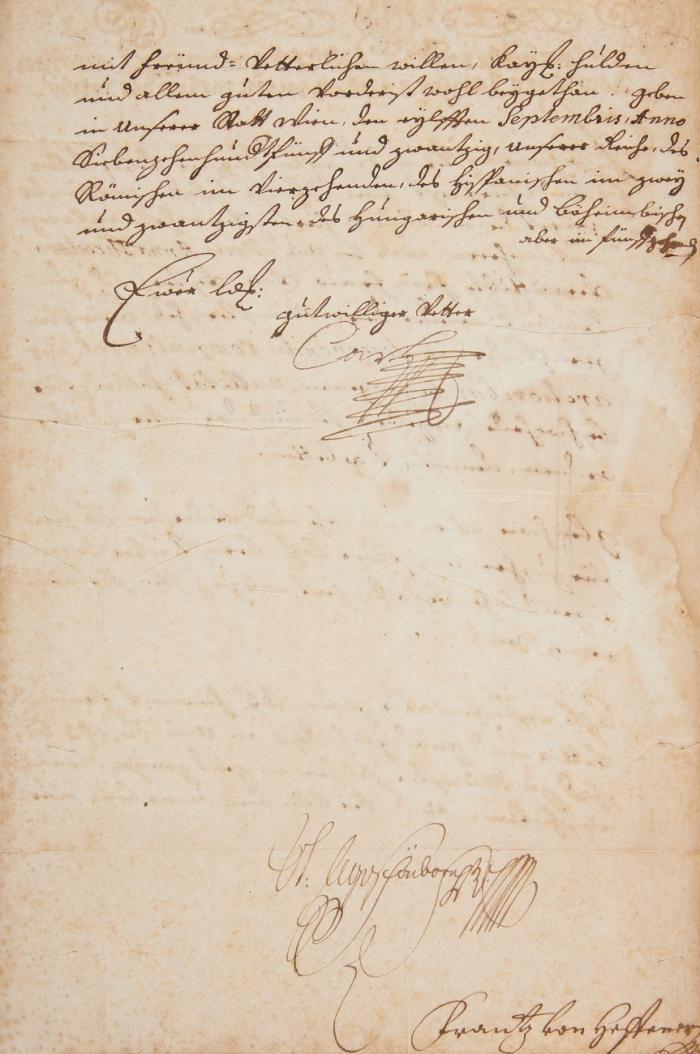 mit freünd- Vetterlichen willen, Kayß: hulden
und allem guten vorderst wohl beygethan: geben
in Unserer Statt Wien, den eylfften Septembris, Anno
Siebenzehenhundtfünff und zwantzig, Unserer Reiche, des
Römischen im Vierzehenden, des Hispanischen im zwey
und zwantzigsten, des Hungarischen und böheimbischen
aber im fünff
Ewer Ld:
gutwilliger Vetter
Carl
Frantz von Hessener